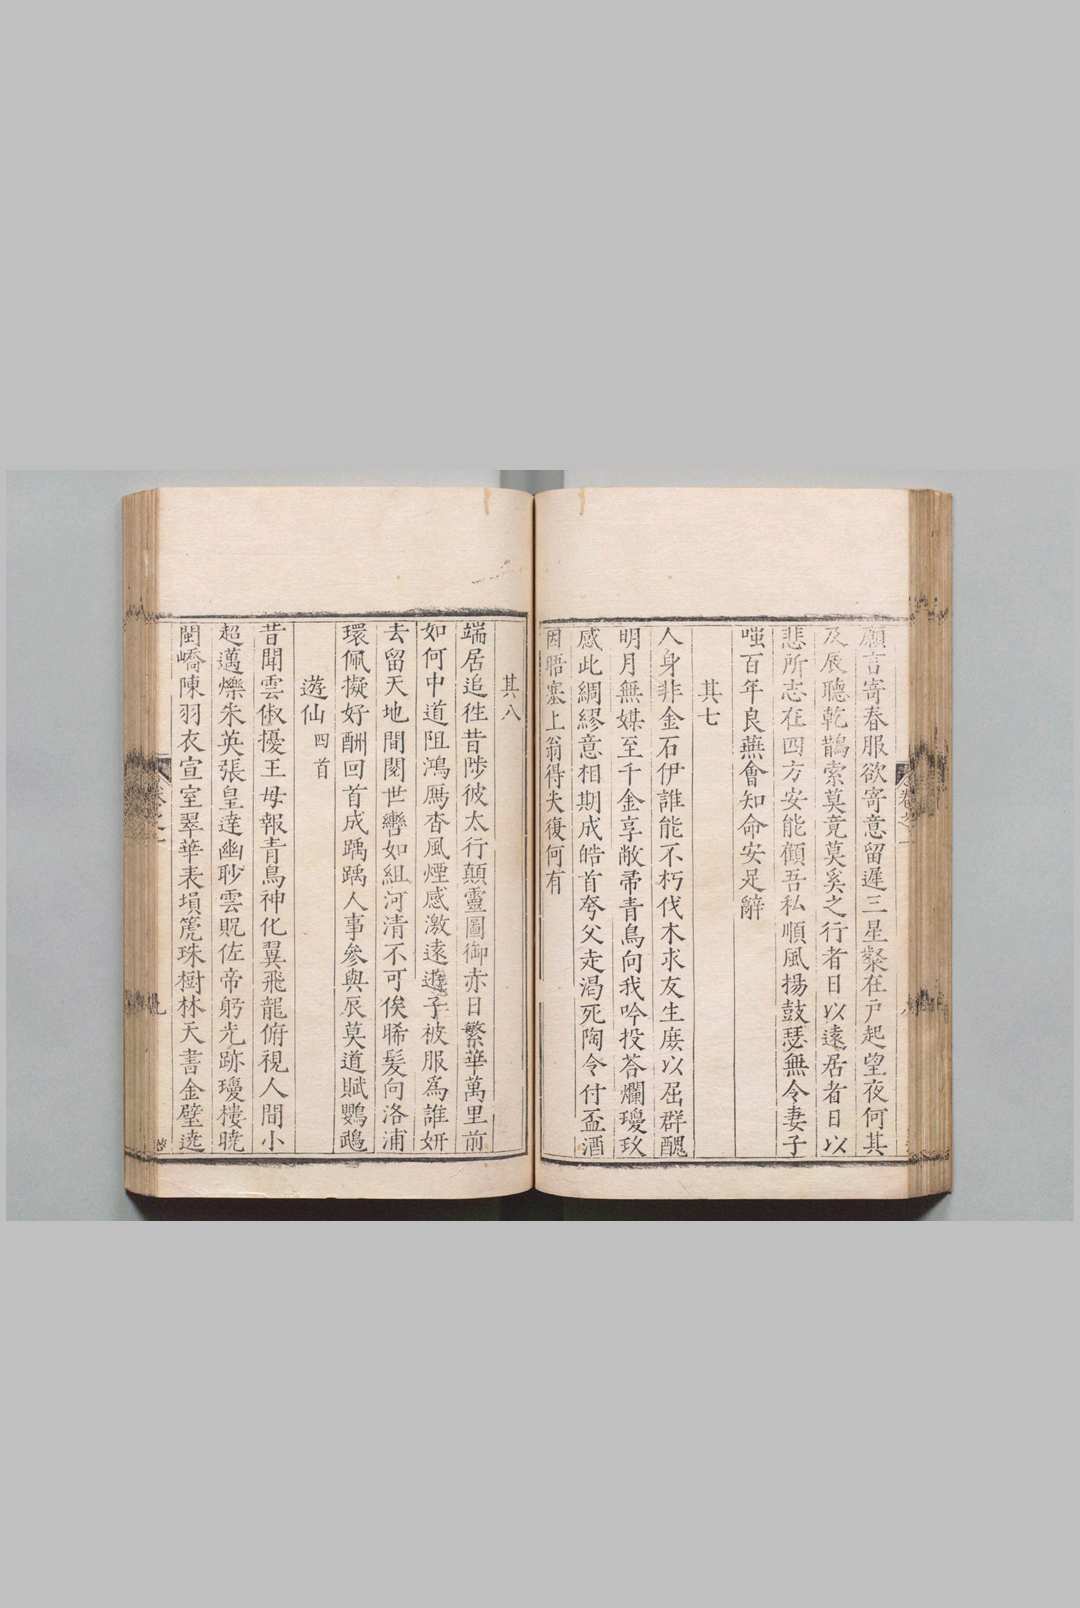 願言寄春服欲寄意留遲三星粲在戶起望夜何其
及辰聽乾鵲索莫竟莫奚之行者日以遠居者日以
悲所志在四方安能顧吾私順風揚鼓瑟無令妻子
嗤百年良燕會知命安足辭
其七
人身非金石伊誰能不朽伐木求友生庶以屈群醜
明月無媒至千金享敝帚青鳥向我吟投荅爛瓊玖
感此綢繆意相期成皓首夸父走渴死陶令付盃酒
因晤塞上翁得失復何有
其八
端居追徃昔陟彼太行顛靈圖御赤日繁華萬里前
如何中道阻鴻鴈杳風煙感激遠遊子被服為誰妍
去留天地間閱世轡如組河清不可俟晞髮向洛浦
環佩擬好酬回首成踽踽人事參與辰莫道賦鸚鵡
遊仙 四首
昔聞雲俶擾王母報青鳥神化翼飛龍俯視人間小
超邁爍朱英張皇達幽眇雲貺佐帝躬光跡瓊樓曉
閬嶠陳羽衣宣室翠華表塤篪珠樹林天書金璧遶
卷之一
八
卷之一
九